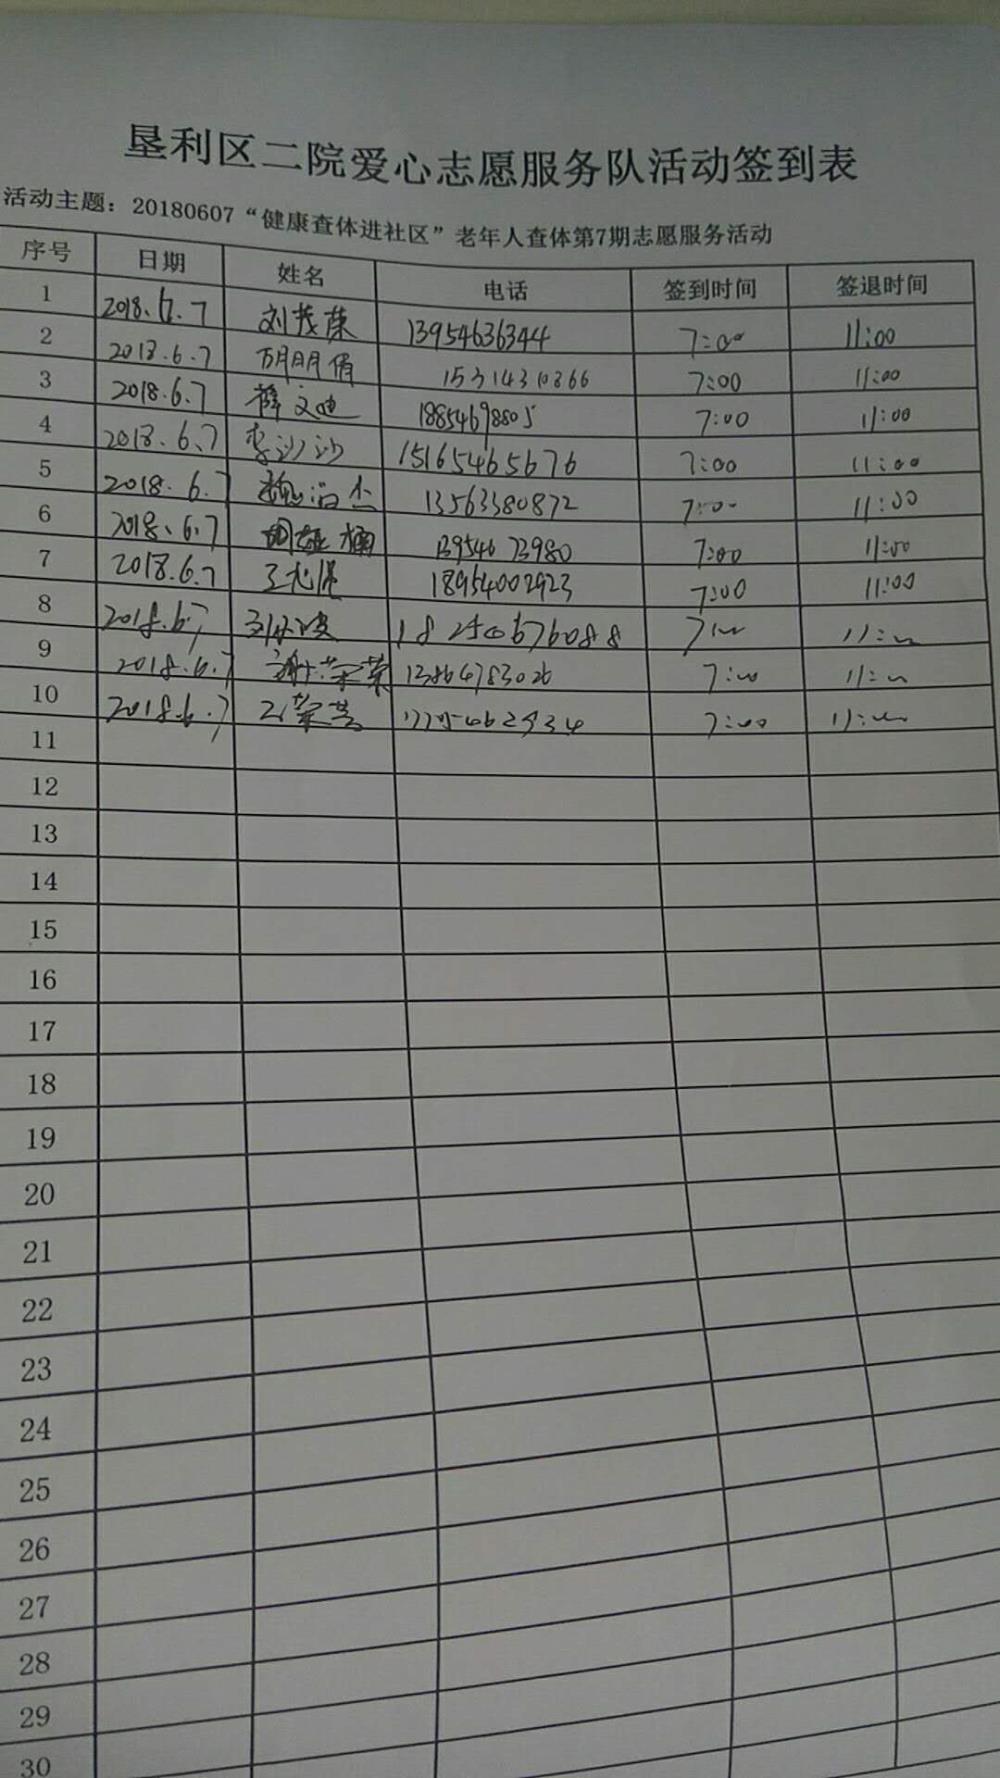 垦利区二院爱心志愿服务队活动签到表
活动主题：20180607“健康查体进社区”老年人查体第7期志愿服务活动
序号 日期 姓名 电话 签到时间 签退时间
1 2018.6.7 刘茂荣 13954636344 7:00 11:00
2 2018.6.7 15314310866 7:00 11:00
3 2018.6.7 薛文迪 18854698805 7:00 11:00
4 2018.6.7 李沙沙 15165465676 7:00 11:00
5 2018.6.7 13563380872 7:00 11:00
6 2018.6.7 13954673980 7:00 11:00
7 2018.6.7 18954002923 7:00 11:00
8 2018.6.7 18250676088 7:00 11:00
9 2018.6.7 谢荣荣 13864783026 7:00 11:00
10 2018.6.7 7:00 11:00
11
12
13
14
15
16
17
18
19
20
21
22
23
24
25
26
27
28
29
30